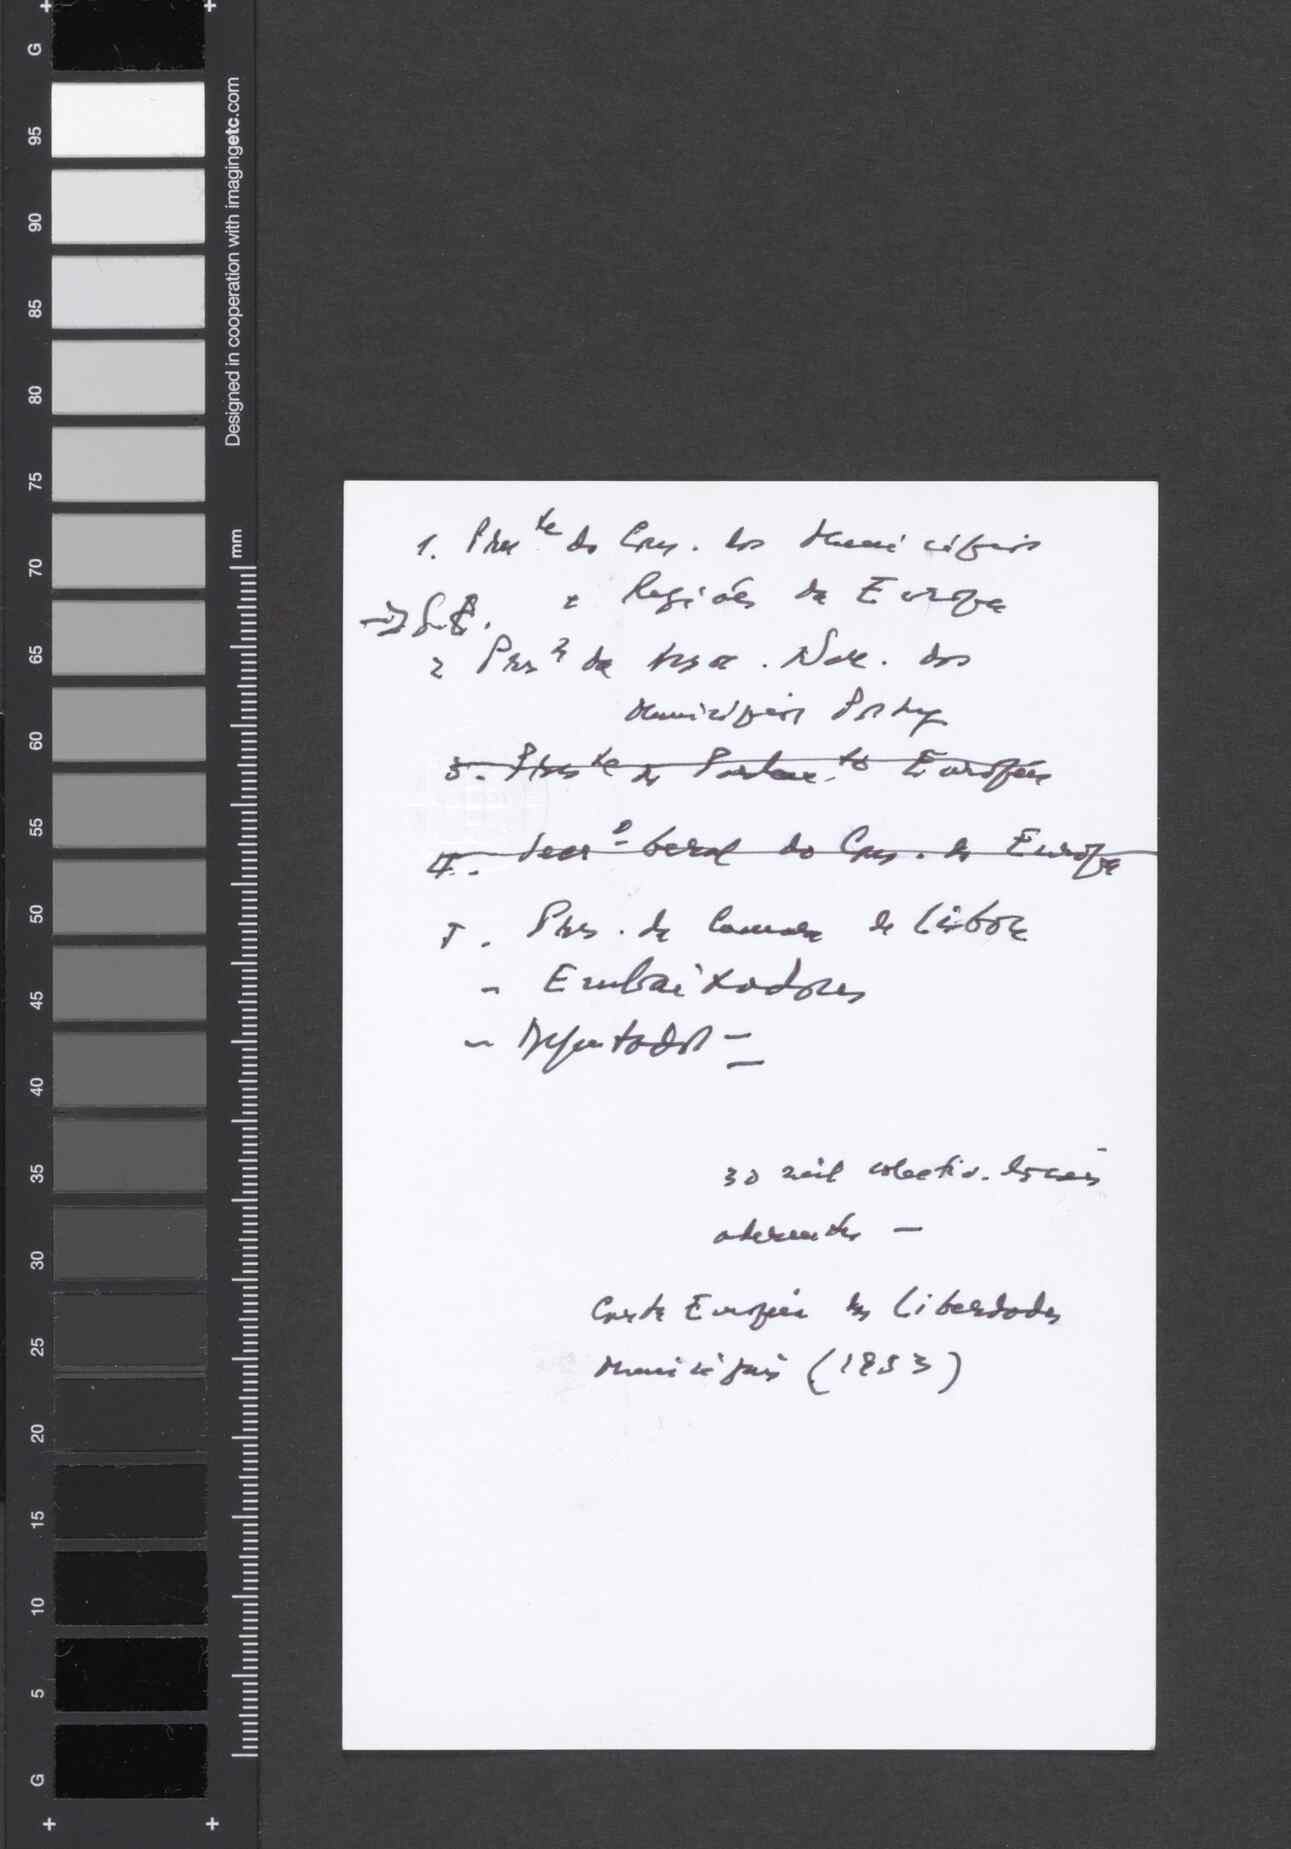 1. Pres.te do Cons. dos Municípios
e Regiões da Europa
→ S.G.
2 Pres.te da Assoc. Nac. dos
Municípios Portug
3. Pres.te do Parlam.to Européu
4. Secr.º Geral do Cons. da Europa
5. Pres. da Camara de Lisboa
- Embaixadores
- Deputados -
30 mil colectiv. locais
aderentes -
Carta Européia das Liberdades
Municipais (1953)
G
95
90
85
80
75
70
65
60
55
50
45
40
35
30
25
20
15
10
5
G
Designed in cooperation with imagingetc.com
mm